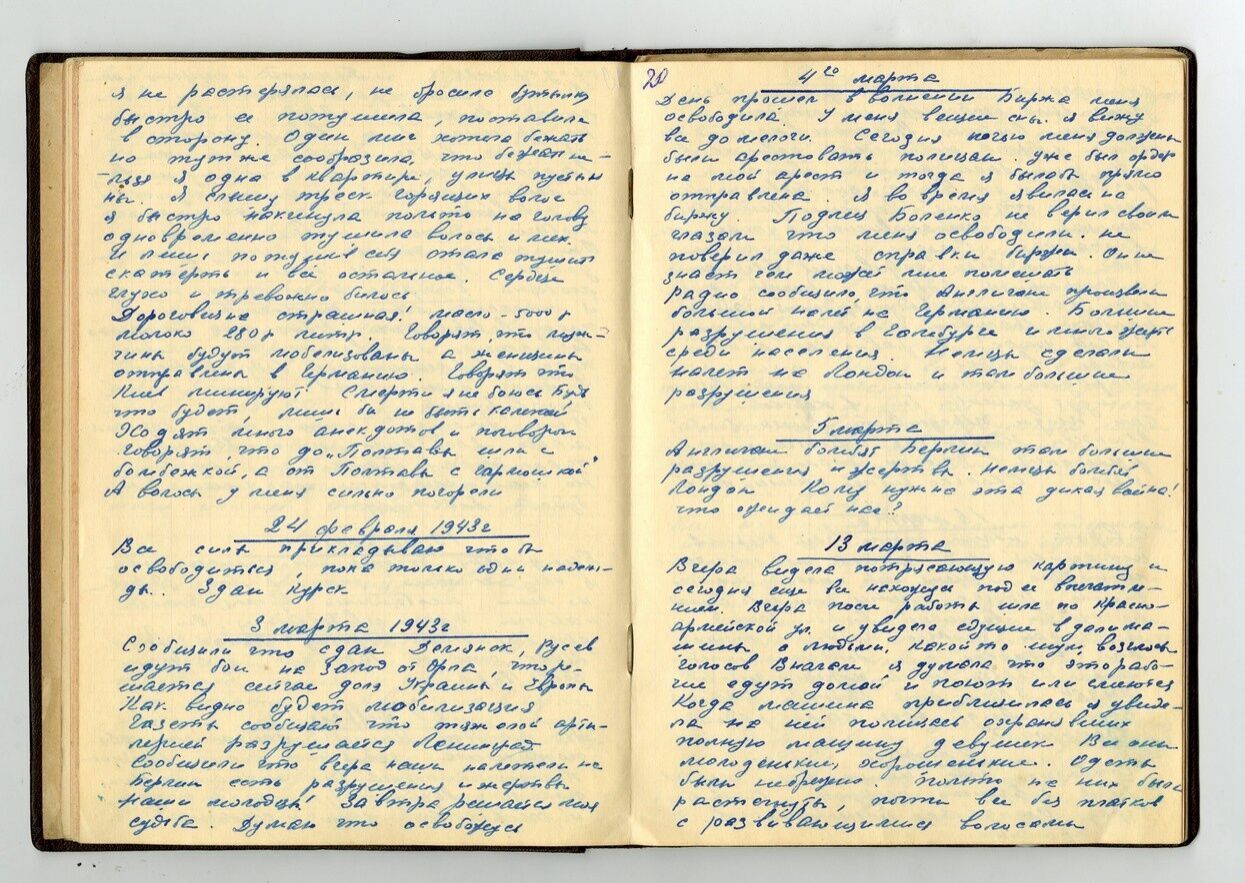 я не растерялась, не бросила бутылку
быстро ее потушила, поставила
в сторону. Один миг хотела бежать
но тут же сообразила что бежать не-
льзя я одна в квартире, улицы пустын
ны. Я слышу треск горящих волос
я быстро накинула пальто на голову
одновременно тушила волосы и мех.
И лишь потушив себя стала тушить
скатерть и все остальное. Сердце
глухо и тревожно билось
Дороговизна страшная! масло - 5000 р
молоко 280 р литр. Говорят, что муж-
чины будут мобелизованы а женщины
отправлены в Германию. Говорят что
Киев минируют Смерти я не боюсь Будь
что будет, лишь бы не быть калекой,
Ходят много анекдотов и поговорок
говорят, что до "Полтавы шли с
бомбежкой, а от Полтавы с гармошкой"
А волосы у меня сильно погорели
24 февраля 1943 г
Все силы прикладываю чтобы
освободиться, пока только одни надеж-
ды.. Сдан Курск
3 марта 1943 г
Сообщили что сдан Демянск, Русев
идут бои на Запад от Орла,
шается сейчас доля Украины и Европы
Как видно будет мобилизация
Газеты сообщают что тяжелой арти-
лерией разрушается Ленинград
Сообщили что вчера наши налетели на
Берлин есть разрушения и жертвы
наши молодцы! Завтра решается моя
судьба. Думаю что освобожусь
20
4го марта
День прошел в волнении Биржа меня
освободила. У меня вещие сны. я вижу
все до мелочи. Сегодня ночью меня должны
были арестовать полицаи. уже был ордер
на мой арест и тогда я была бы прямо
отправлена. Я во время явилась на
биржу. Подлец Боленко не верил своим
глазам что меня освободили. не
поверил даже справки биржи. Он не
знает чем может мне помешать
радио сообщило, что Англичане произвели
большой налет на Германию. Большие
разрушения в Гамбурге и много жертв
среди населения. Немцы сделали
налет на Лондон и там большие
разрушения
5 марта
Англичане бомбят Берлин там большие
разрушения и жертвы. Немцы бомбят
Лондон Кому нужна эта дикая война!
что ожидает нас?
13 марта
Вчера видела потрясающую картину и
сегодня еще все нахожусь под ее впечатле-
нием. Вчера после работы шла по Красно-
армейской ул. и увидела едущие в дали ма-
шины с людьми, какой то шум, возгласы
голосов Вначале я думала что это рабо-
чие едут домой и поют или смеются
Когда машина приблизилась я увиде-
ла на ней полицаев охранявших
полную машину девушек Все они
молоденькие, хорошенькие. Одеты
были небрежно. Пальто на них были
растегнуты, почти все без платков
с развивающимися волосами